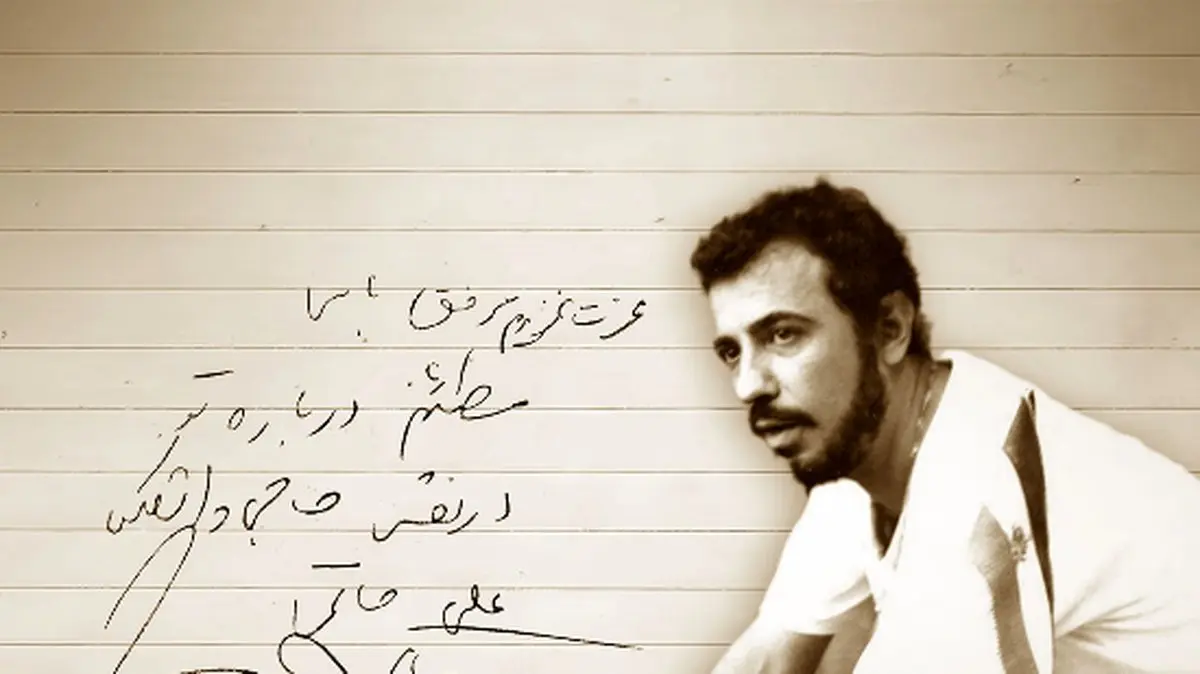 عزت عزیزم موفق باشی
مطمئنم درباره تو
در نقش حاجی واشنگتن
علی حاتمی